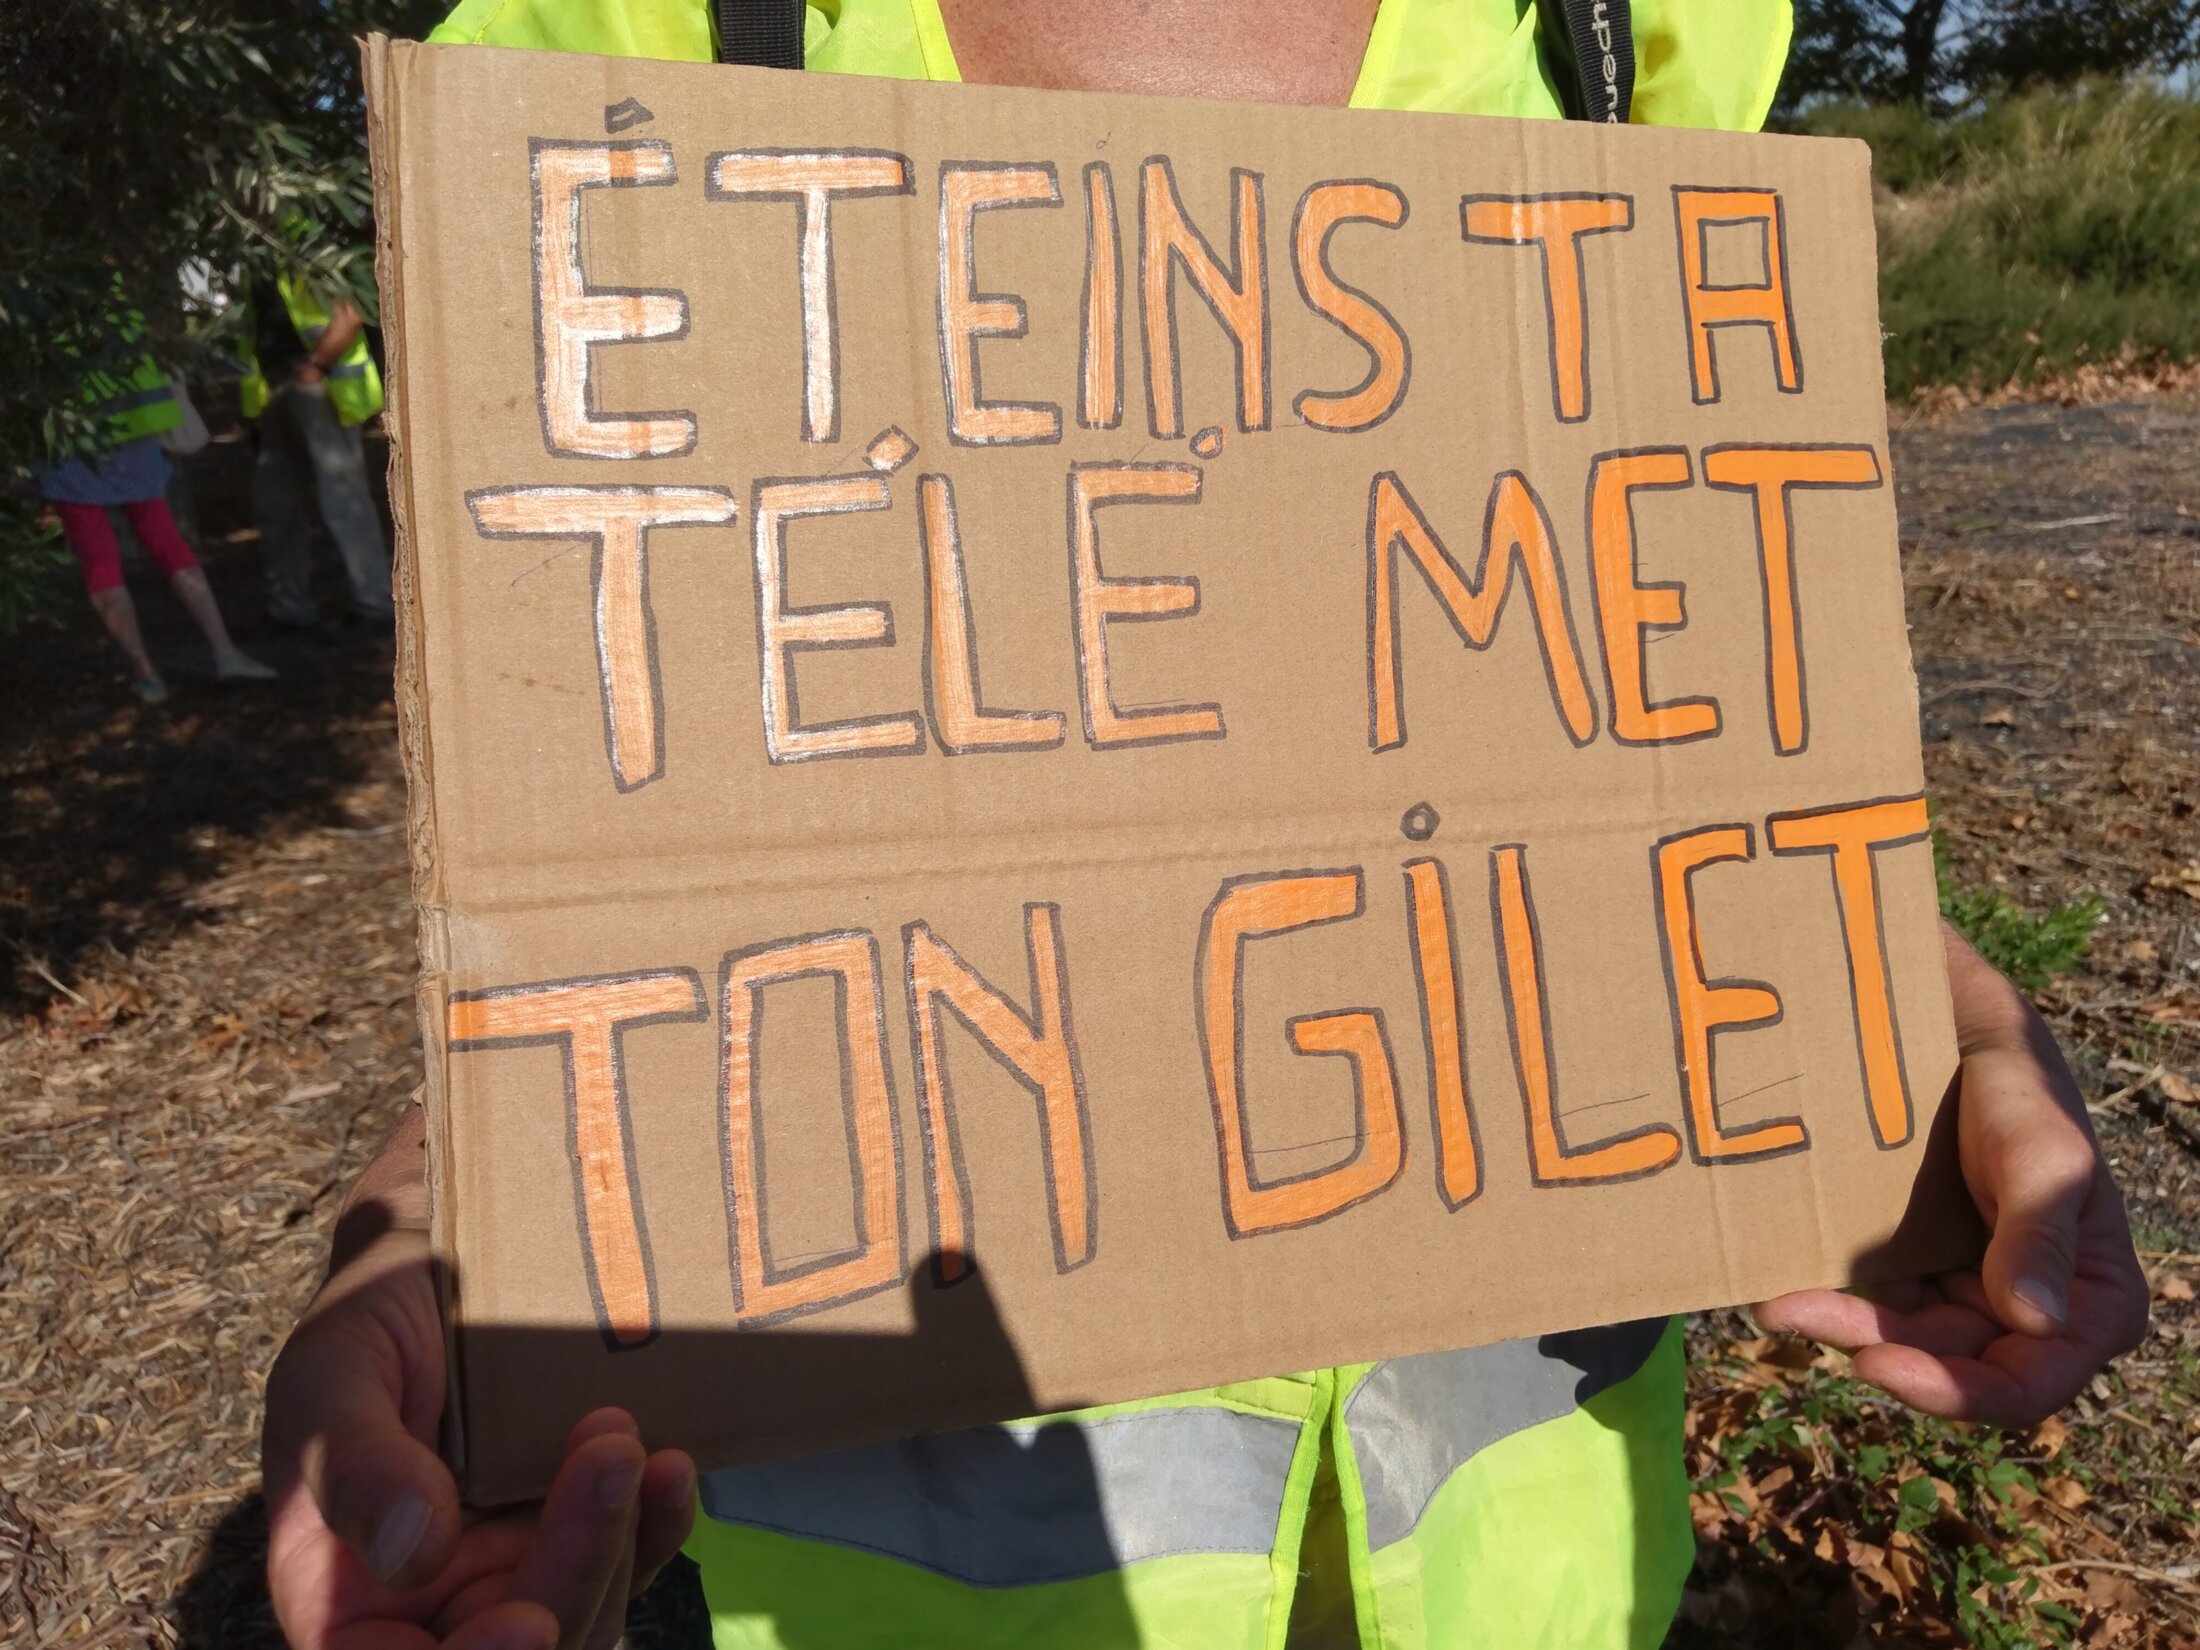 ÉTEINS TA
TÉLÉ MET
TON GiLET
Quechua